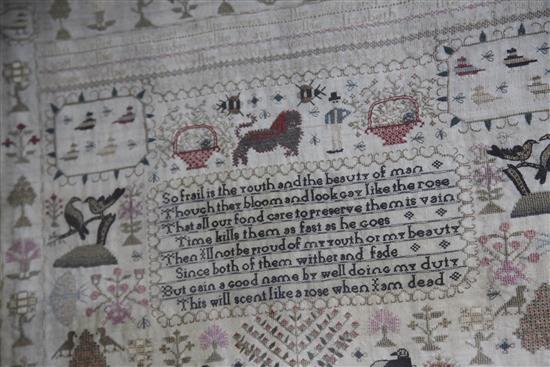 So frail is the youth and the beauty of man
Though they bloom and look gay like the rose
That all our fond care to preserve them is vain
Time kills them as fast as he goes
Then Ill not be proud of my youth or my beauty
Since both of them wither and fade
But gain a good name by well doing my duty
This will scent like a rose when I am dead